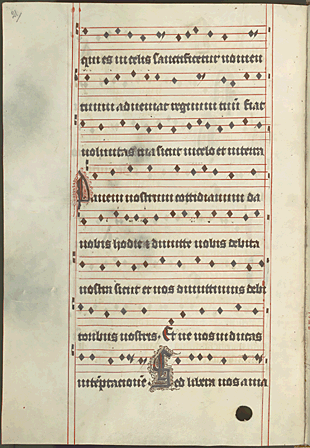 qui es in celis sanctificetur nomen
tuum adveniat regnum tuū fiat
voluntas tua sicut in celo et in terra
Panem nostrum cottidianum da
nobis hodie et dimitte nobis debita
nostra sicut et nos dimittimus debi
toribus nostris · Et ne nos inducas
in tēptacionē · Sed libera nos a ma